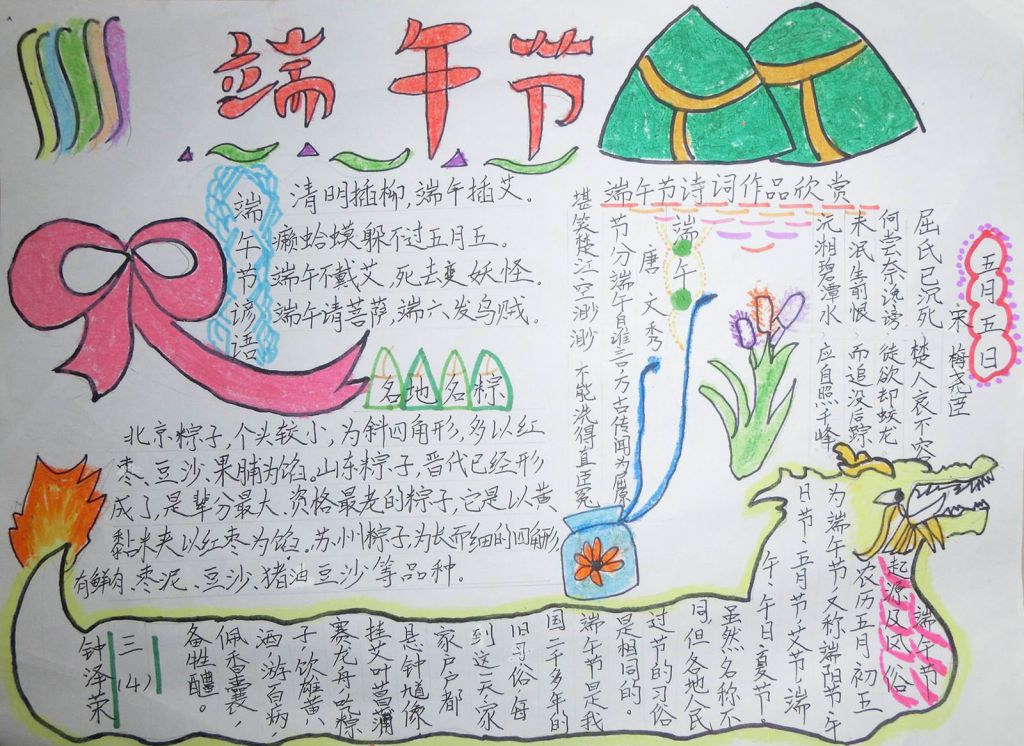 端午节
端午节谚语
清明插柳，端午插艾。
癞蛤蟆躲不过五月五。
端午不戴艾，死去变妖怪。
端午请菩萨，端六发乌贼。
各地名粽
北京粽子，个头较小，为斜四角形，多以红
枣、豆沙、果脯为馅。山东粽子，晋代已经形
成了，是辈分最大、资格最老的粽子，它是以黄
黏米夹以红枣为馅。苏州粽子，为长而细的四角形，
有鲜肉、枣泥、豆沙、猪油豆沙等品种。
端午节诗词作品欣赏
端午
唐 文秀
节分端午自谁言，万古传闻为屈原
堪笑楚江空渺渺 不能洗得直臣冤
五月五日
宋 梅尧臣
屈氏已沉死 楚人哀不容
何尝奈谗谤 徒欲却蛟龙
未泯生前恨 而追没后踪
沅湘碧潭水 应自照千峰
端午节
起源及风俗
农历五月初五
为端午节，又称端阳节、午
日节、五月节、艾节、端
午、午日、夏节。
虽然名称不
同，但各地人民
过节的习俗
是相同的。
端午节是我
国二千多年的
旧习俗，每
到这一天，家
家户户都
悬钟馗像，
挂艾叶菖蒲，
赛龙舟，吃粽
子，饮雄黄
酒，游百病，
佩香囊，
备牲醴。
三（4）
钟泽荣